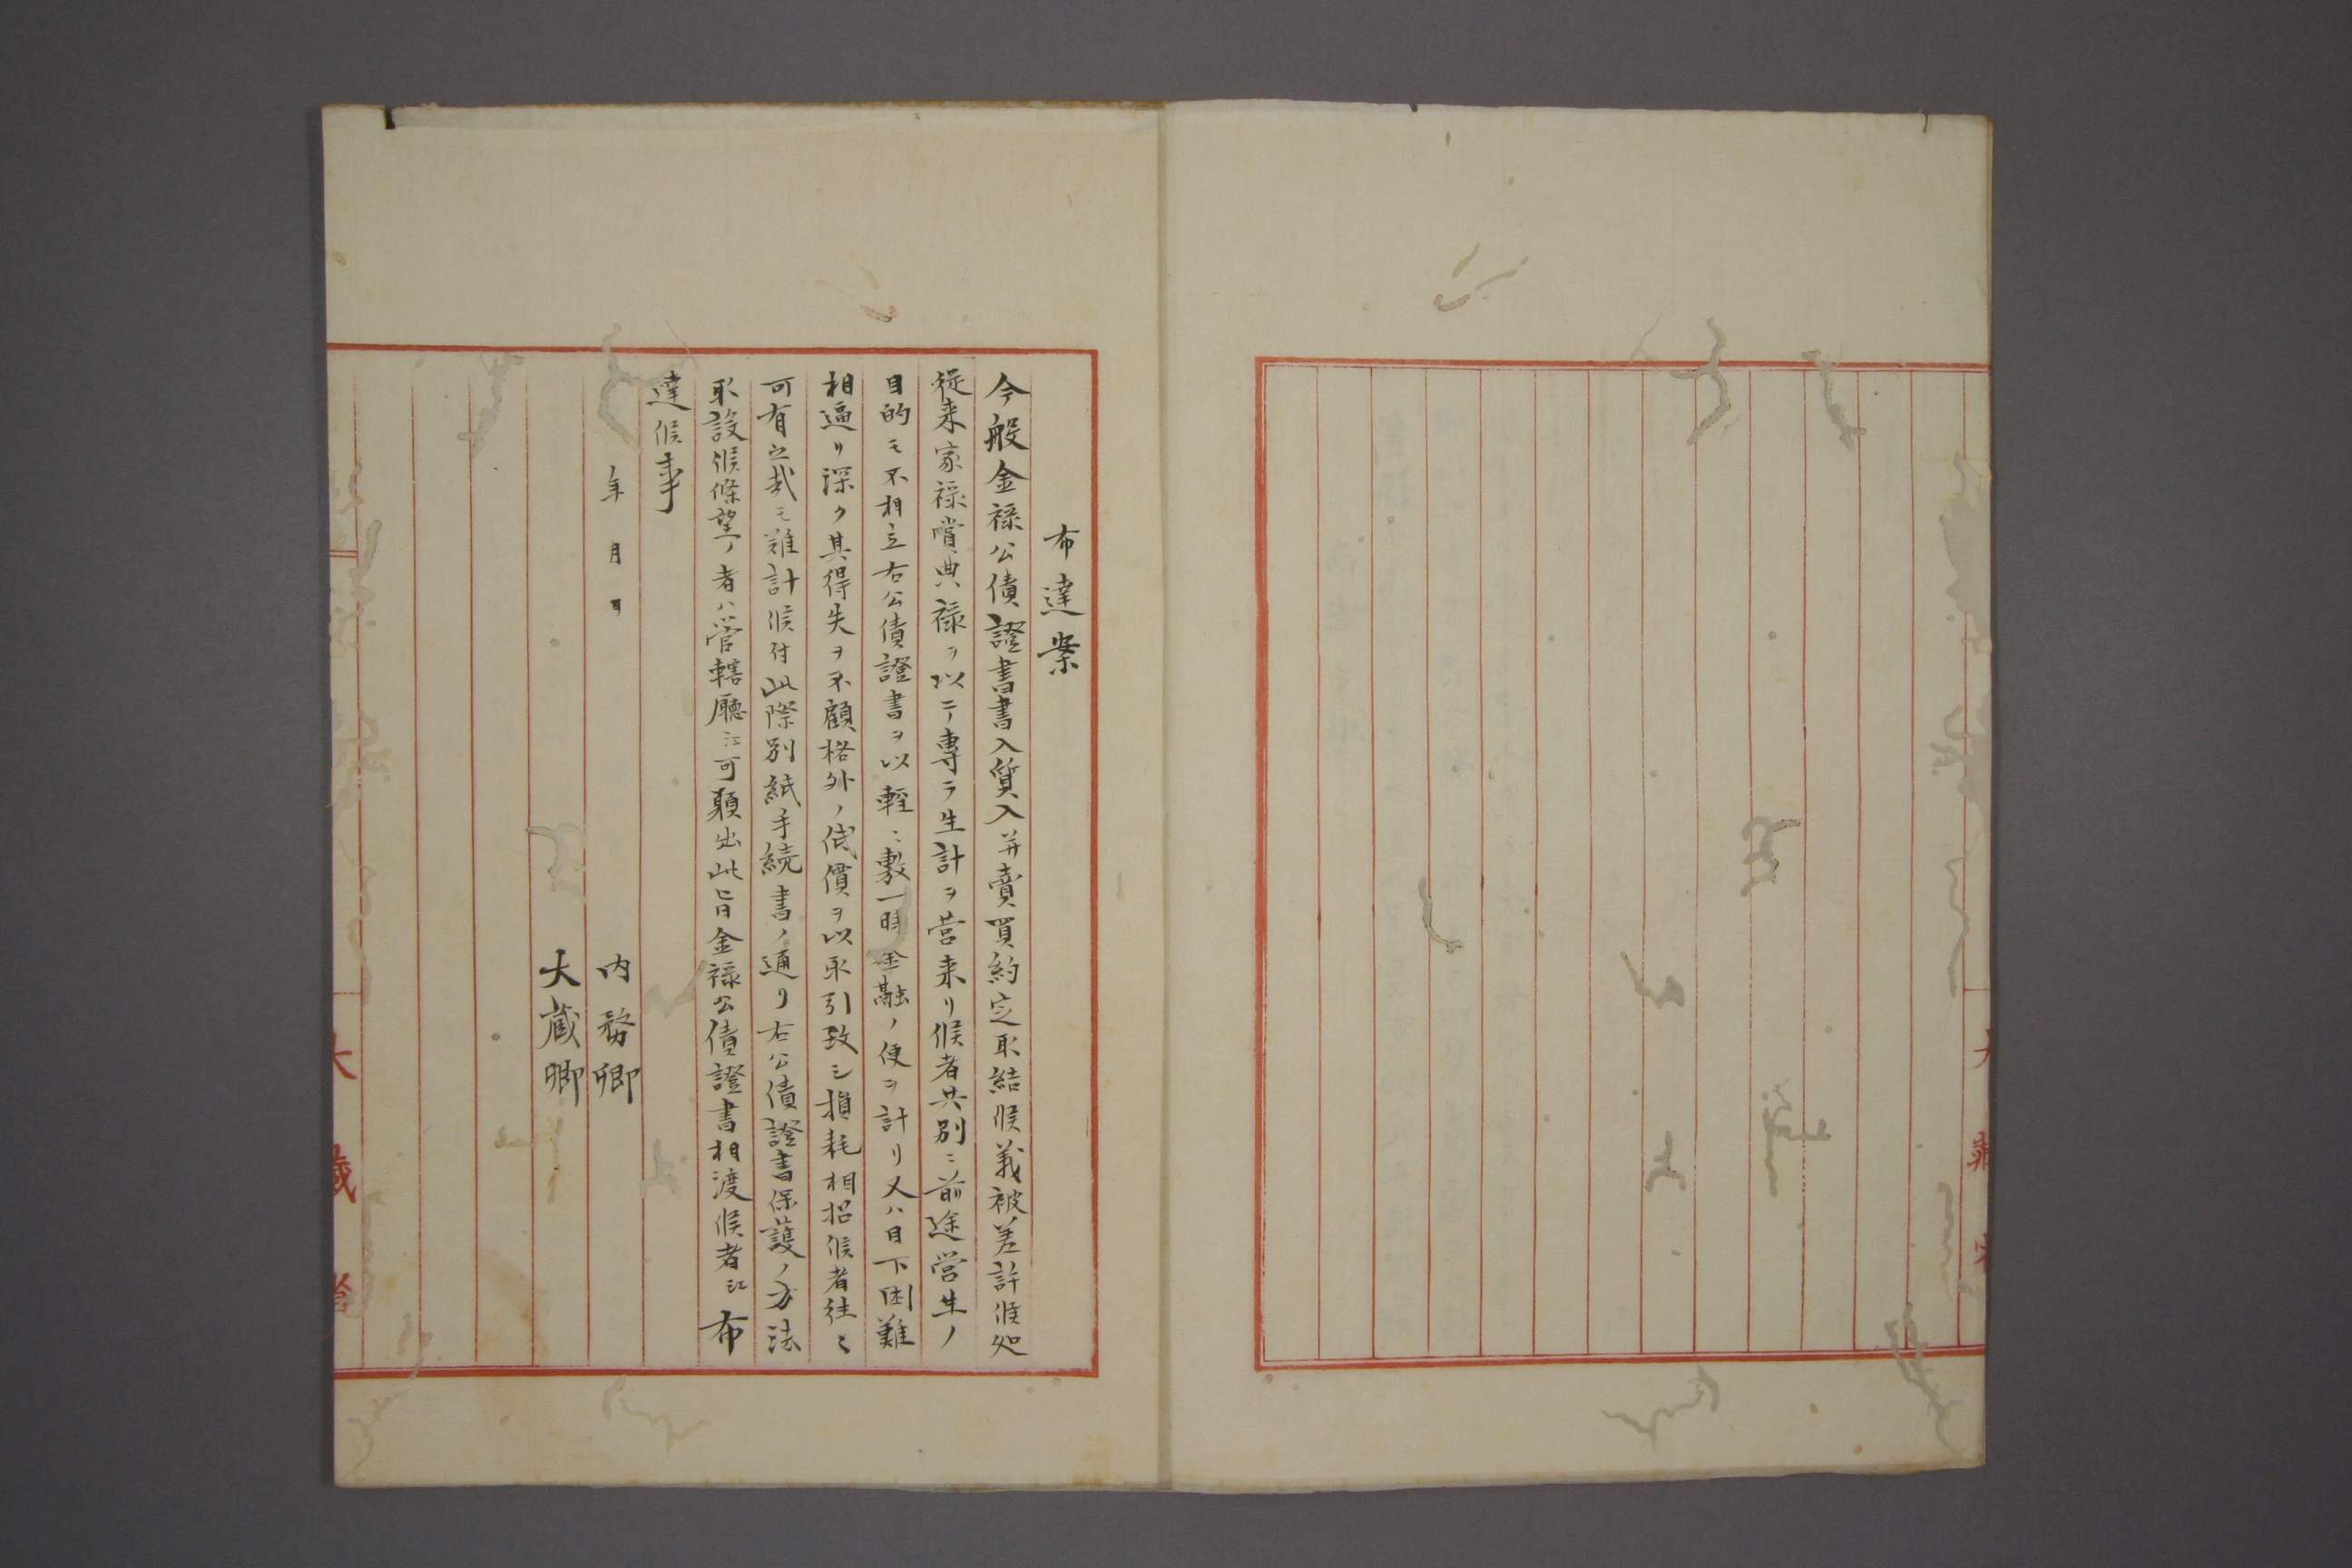 布達案
今般金禄公債證書書入質入并賣買約定取結候義被差許候処
従来家禄賞典禄ヲ以テ専ラ生計ヲ営来リ候者共別ニ前途営生ノ
目的モ不相立右公債證書ヲ以軽ニ一時金融ノ便ヲ計リ又ハ目下困難
相逼リ深ク其得失ヲ不顧格外ノ低價ヲ以取引致シ損耗相招候者往々
可有之哉モ難計候付此際別紙手続書ノ通リ右公債證書保護ノ方法
取設候條望ノ者ハ管轄廳江可願出此旨金禄公債證書相渡候者江布
達候事
年月日
内務卿
大蔵卿
大藏省